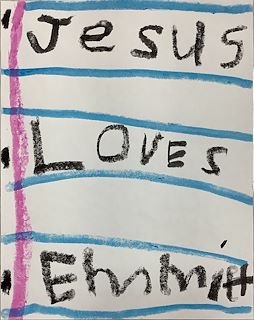 Jesus
Loves
Emmitt